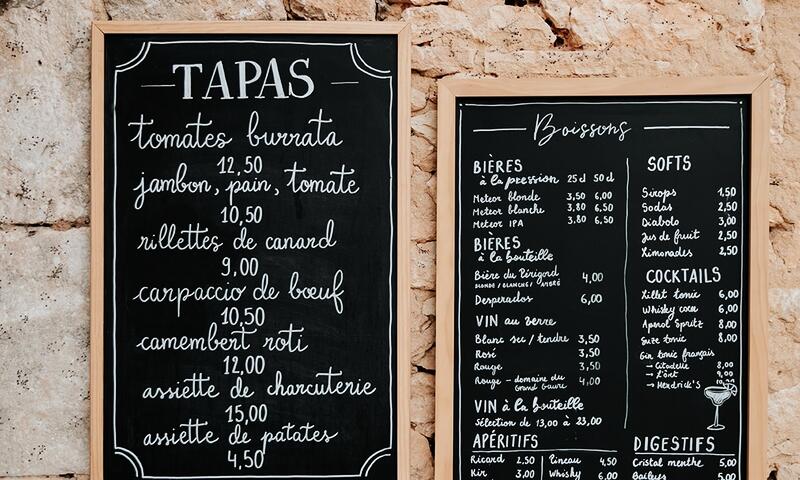 TAPAS
tomates burrata
12,50
jambon, pain, tomate
10,50
rillettes de canard
9,00
carpaccio de bœuf
10,50
camembert roti
12,00
assiette de charcuterie
15,00
assiette de patates
4,50
Boissons
BIÈRES
à la pression 25cl 50cl
Meteor blonde 3,50 6,00
Meteor blanche 3,80 6,50
Meteor IPA 3,80 6,50
BIÈRES
à la bouteille
Bière du Périgord 4,00
BLONDE / BLANCHE / AMBRÉ
Desperados 6,00
VIN au verre
Blanc sec / tendre 3,50
Rosé 3,50
Rouge 3,50
Rouge - domaine du 4,00
VIN à la bouteille
Sélection de 13,00 à 23,00
APÉRITIFS
Ricard 2,50
Kir 3,00
Pineau 4,50
Whisky 6,00
SOFTS
Sirops 1,50
Sodas 2,50
Diabolo 3,00
Jus de fruit 2,50
Limonades 2,50
COCKTAILS
Lillet tonic 6,00
Whisky coca 6,00
Aperol Spritz 8,00
Suze tonic 8,00
Gin tonic français
→ Citadelle 8,00
→ 9,00
→ Hendrick's
DIGESTIFS
Cristal menthe 5,00
Baileys 5,00